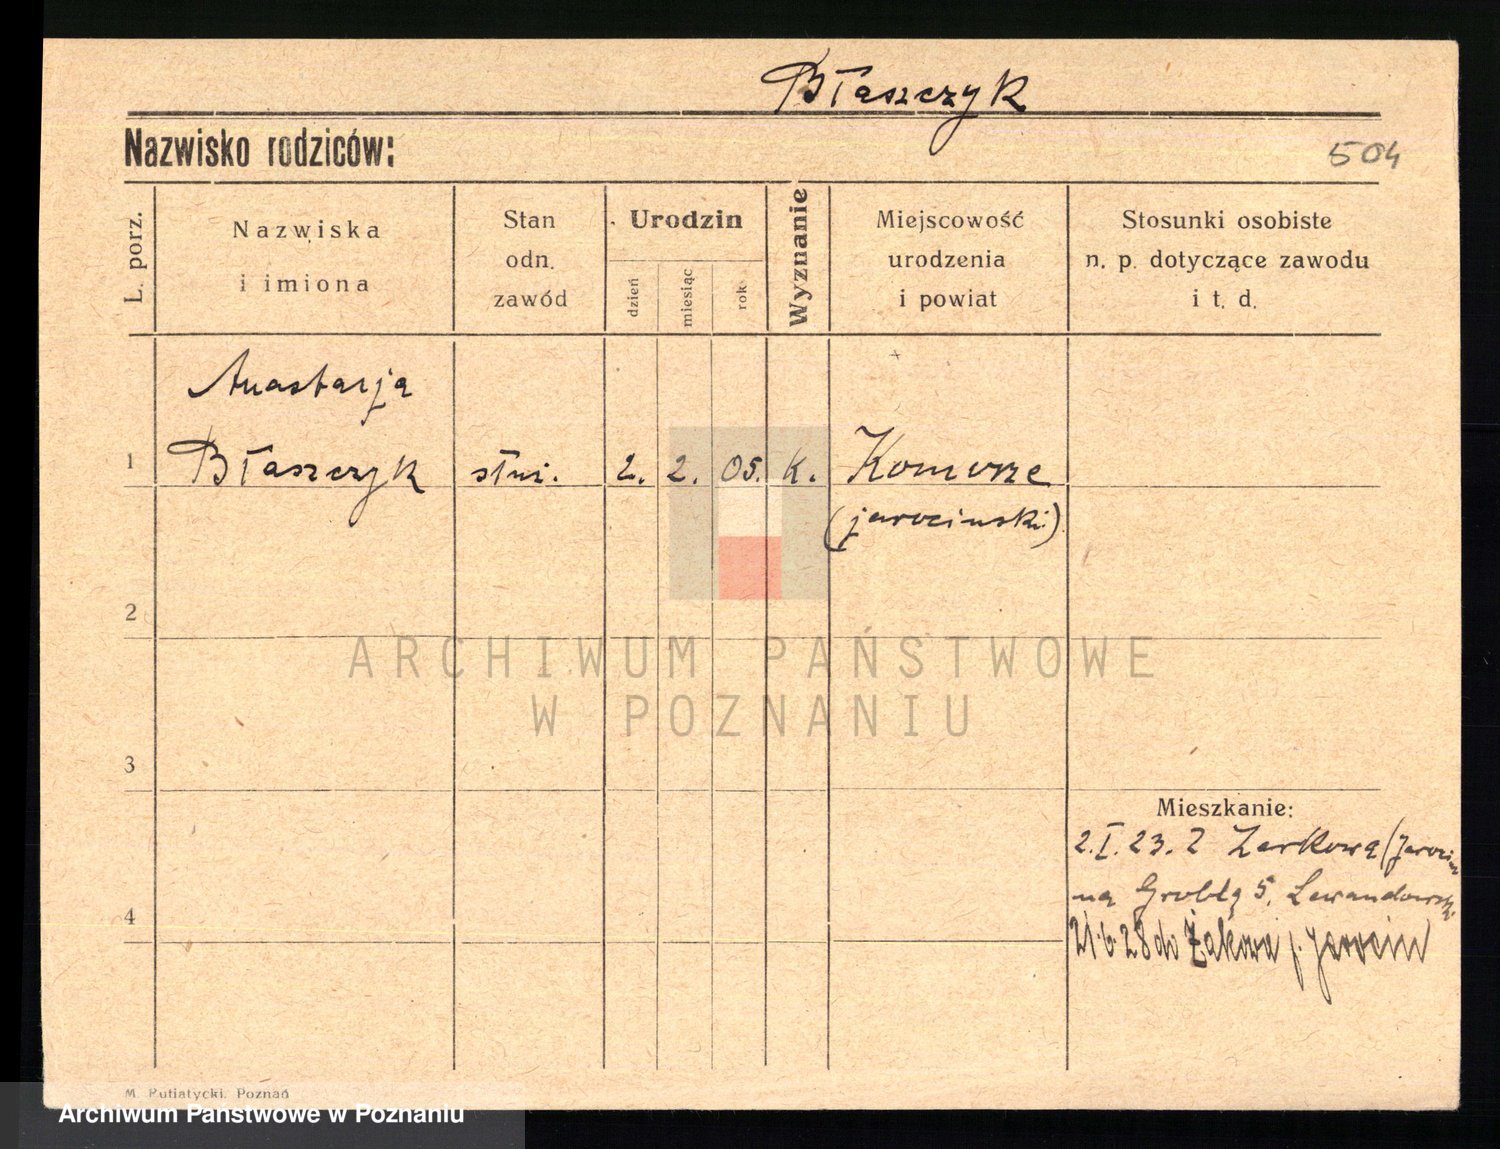 Błaszczyk
Nazwisko rodziców:
504
L. porz.
Nazwiska
i imiona
Stan
odn.
zawód
Urodzin
dzień
miesiąc
rok
Wyznanie
Miejscowość
urodzenia
i powiat
Stosunki osobiste
n. p. dotyczące zawodu
i t. d.
Anastazja
1 Błaszczyk służ. 2. 2. 05. k. Komorze
(jarocinski)
2
ARCHIWUM PAŃSTWOWE
W POZNANIU
3
Mieszkanie:
2.I.23. Z Żerkowa (Jarocin
na Groblą 5, Lewandowski
4
21.6.28 do Żakowa p. Jarocin
M. Putiatycki, Poznań
Archiwum Państwowe w Poznaniu